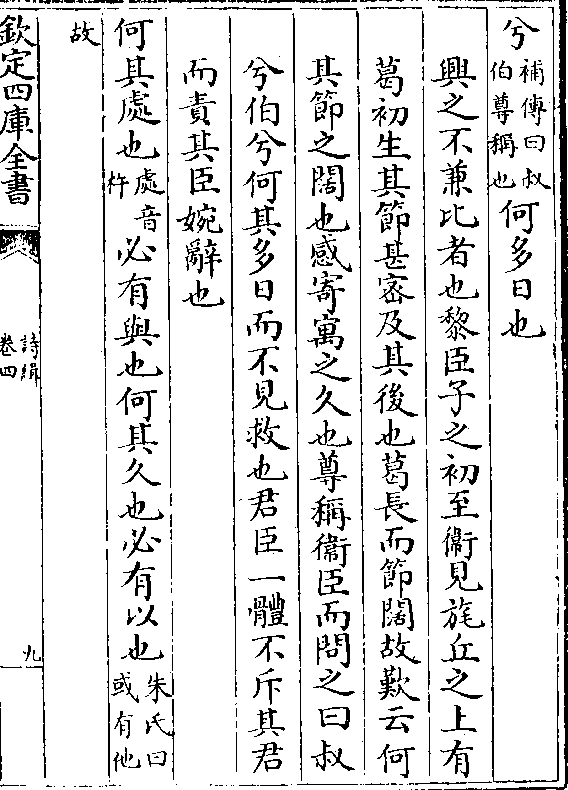 兮補傳曰叔伯尊稱也何多日也
興之不兼比者也黎臣子之初至衞見旄丘之上有
葛初生其節甚密及其後也葛長而節闊故歎云何
其節之闊也感寄寓之久也尊稱衞臣而問之曰叔
兮伯兮何其多日而不見救也君臣一體不斥其君
而責其臣婉辭也
何其處也處音杵必有與也何其久也必有以也朱氏曰或有他
故
欽定四庫全書
詩緝
卷四
九